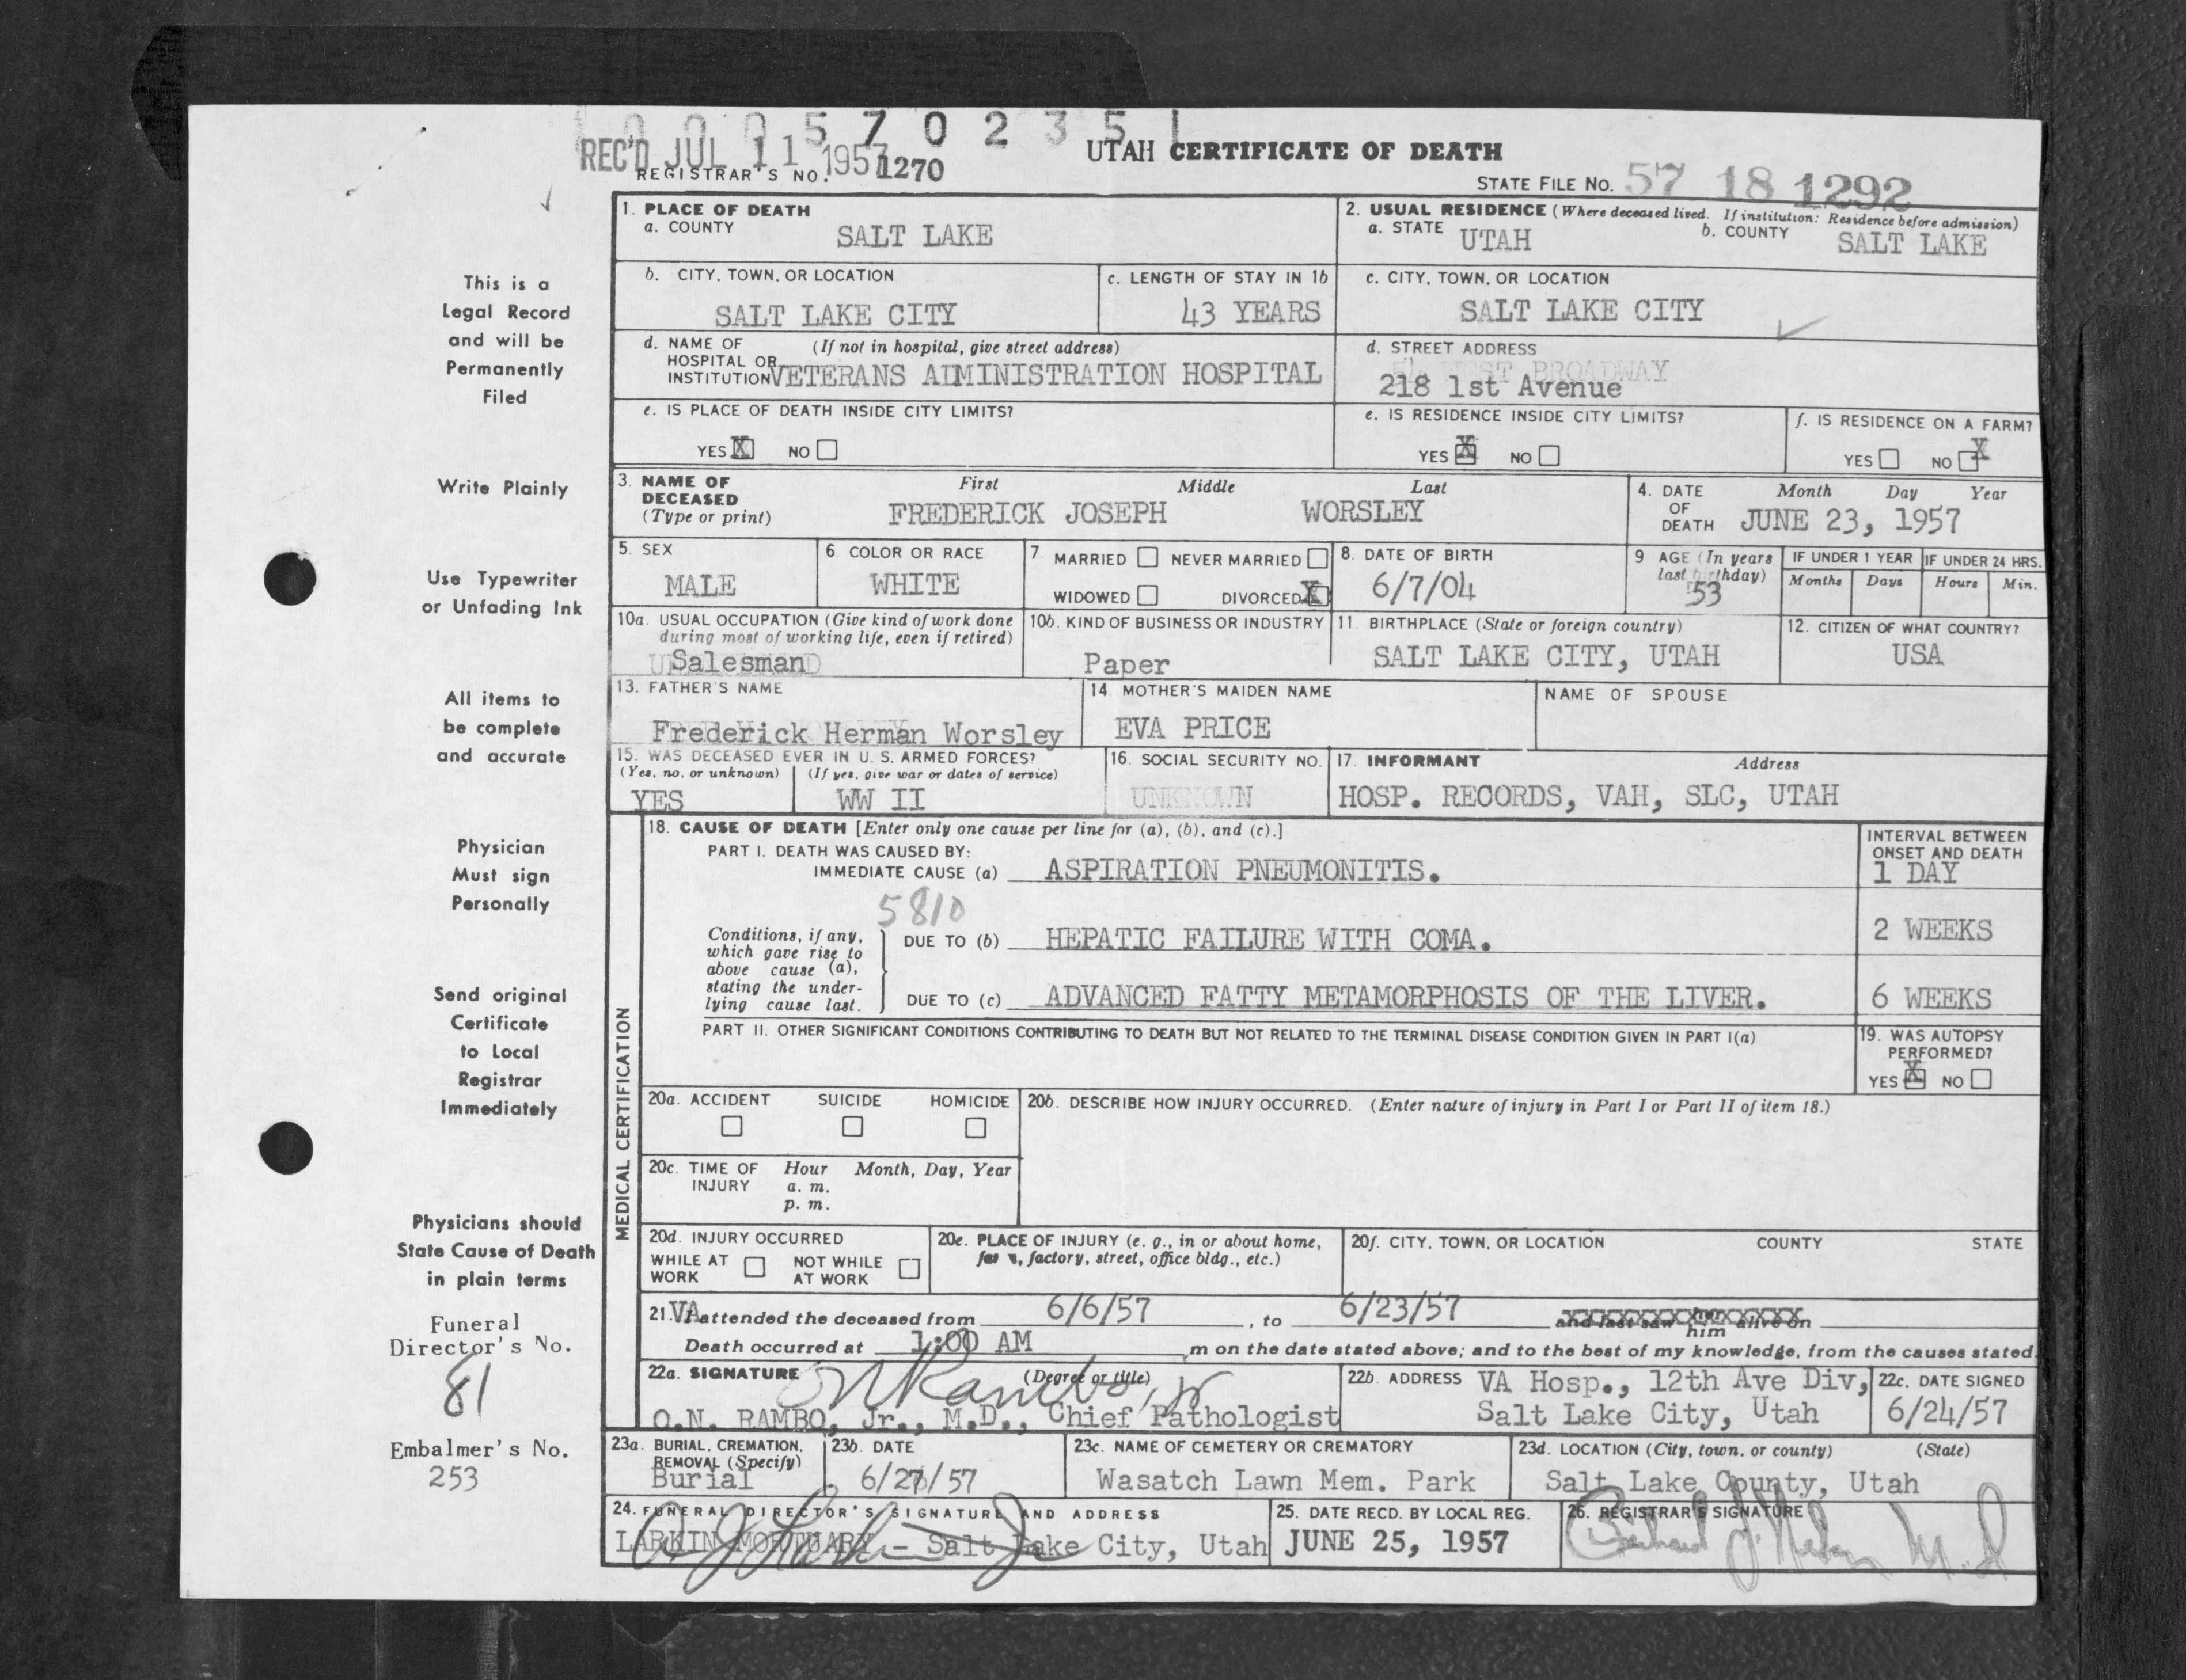 0 0 0 5 7 0 2 3 5 1
REC'D JUL 11 1957
REGISTRAR'S NO. 1270
UTAH CERTIFICATE OF DEATH
STATE FILE NO. 57 18 1292
1. PLACE OF DEATH
a. COUNTY SALT LAKE
2. USUAL RESIDENCE (Where deceased lived. If institution: Residence before admission)
a. STATE UTAH b. COUNTY SALT LAKE
b. CITY, TOWN, OR LOCATION
SALT LAKE CITY
c. LENGTH OF STAY IN 1b
43 YEARS
c. CITY, TOWN, OR LOCATION
SALT LAKE CITY
d. NAME OF (If not in hospital, give street address)
HOSPITAL OR
INSTITUTION VETERANS ADMINISTRATION HOSPITAL
d. STREET ADDRESS
WEST BROADWAY
218 1st Avenue
e. IS PLACE OF DEATH INSIDE CITY LIMITS?
YES X NO
e. IS RESIDENCE INSIDE CITY LIMITS?
YES X NO
f. IS RESIDENCE ON A FARM?
YES NO X
3. NAME OF DECEASED (Type or print)
First Middle Last
FREDERICK JOSEPH WORSLEY
4. DATE OF DEATH
Month Day Year
JUNE 23, 1957
5. SEX
MALE
6. COLOR OR RACE
WHITE
7. MARRIED NEVER MARRIED
WIDOWED DIVORCED X
8. DATE OF BIRTH
6/7/04
9 AGE (In years last birthday)
53
IF UNDER 1 YEAR
Months Days
IF UNDER 24 HRS.
Hours Min.
10a. USUAL OCCUPATION (Give kind of work done
during most of working life, even if retired)
Salesman
10b. KIND OF BUSINESS OR INDUSTRY
Paper
11. BIRTHPLACE (State or foreign country)
SALT LAKE CITY, UTAH
12. CITIZEN OF WHAT COUNTRY?
USA
13. FATHER'S NAME
Frederick Herman Worsley
14. MOTHER'S MAIDEN NAME
EVA PRICE
NAME OF SPOUSE
15. WAS DECEASED EVER IN U. S. ARMED FORCES?
(Yes, no, or unknown) (If yes, give war or dates of service)
YES WW II
16. SOCIAL SECURITY NO.
UNKNOWN
17. INFORMANT Address
HOSP. RECORDS, VAH, SLC, UTAH
MEDICAL CERTIFICATION
18. CAUSE OF DEATH [Enter only one cause per line for (a), (b), and (c).]
PART I. DEATH WAS CAUSED BY:
IMMEDIATE CAUSE (a) ASPIRATION PNEUMONITIS.
INTERVAL BETWEEN
ONSET AND DEATH
1 DAY
5810
Conditions, if any,
which gave rise to
above cause (a),
stating the under-
lying cause last.
DUE TO (b) HEPATIC FAILURE WITH COMA.
2 WEEKS
DUE TO (c) ADVANCED FATTY METAMORPHOSIS OF THE LIVER.
6 WEEKS
PART II. OTHER SIGNIFICANT CONDITIONS CONTRIBUTING TO DEATH BUT NOT RELATED TO THE TERMINAL DISEASE CONDITION GIVEN IN PART I(a)
19. WAS AUTOPSY
PERFORMED?
YES X NO
20a. ACCIDENT SUICIDE HOMICIDE
20b. DESCRIBE HOW INJURY OCCURRED. (Enter nature of injury in Part I or Part II of item 18.)
20c. TIME OF INJURY
Hour Month, Day, Year
a. m.
p. m.
20d. INJURY OCCURRED
WHILE AT WORK NOT WHILE AT WORK
20e. PLACE OF INJURY (e. g., in or about home,
factory, street, office bldg., etc.)
20f. CITY, TOWN, OR LOCATION COUNTY STATE
21. VA attended the deceased from 6/6/57, to 6/23/57 and last saw her him alive on
Death occurred at 1:00 AM m on the date stated above; and to the best of my knowledge, from the causes stated.
22a. SIGNATURE (Degree or title)
ON Rambo, Jr
O.N. RAMBO, Jr., M.D., Chief Pathologist
22b. ADDRESS VA Hosp., 12th Ave Div,
Salt Lake City, Utah
22c. DATE SIGNED
6/24/57
23a. BURIAL, CREMATION,
REMOVAL (Specify)
Burial
23b. DATE
6/27/57
23c. NAME OF CEMETERY OR CREMATORY
Wasatch Lawn Mem. Park
23d. LOCATION (City, town, or county) (State)
Salt Lake County, Utah
24. FUNERAL DIRECTOR'S SIGNATURE AND ADDRESS
LARKIN MORTUARY - Salt Lake City, Utah
25. DATE RECD. BY LOCAL REG.
JUNE 25, 1957
26. REGISTRAR'S SIGNATURE
This is a
Legal Record
and will be
Permanently
Filed
Write Plainly
Use Typewriter
or Unfading Ink
All items to
be complete
and accurate
Physician
Must sign
Personally
Send original
Certificate
to Local
Registrar
Immediately
Physicians should
State Cause of Death
in plain terms
Funeral
Director's No.
81
Embalmer's No.
253